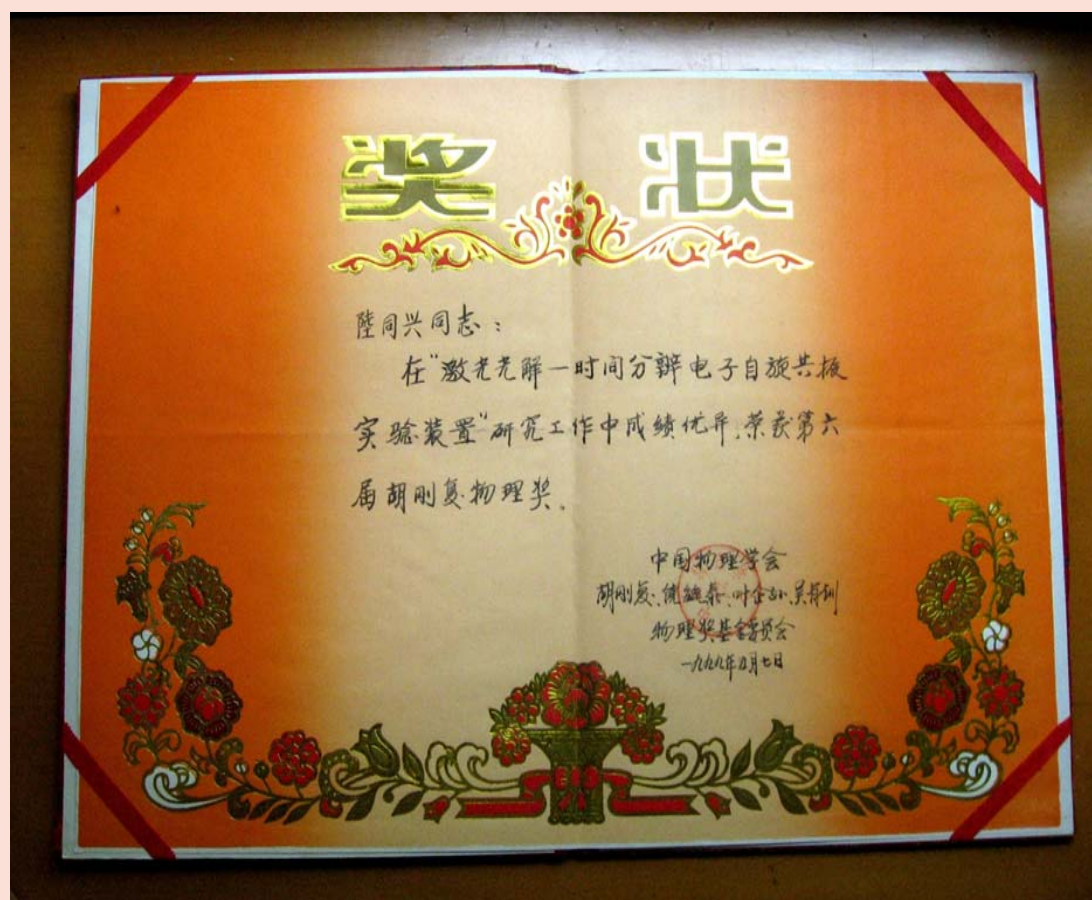 奖 状
陸同兴同志：
在"激光光解一时间分辨电子自旋共振
实验装置"研究工作中成绩优异,荣获第六
届胡刚复物理奖。
中国物理学会
胡刚复、饶毓泰、叶企孙、吴有训
物理奖基金委员会
一九九九年九月七日